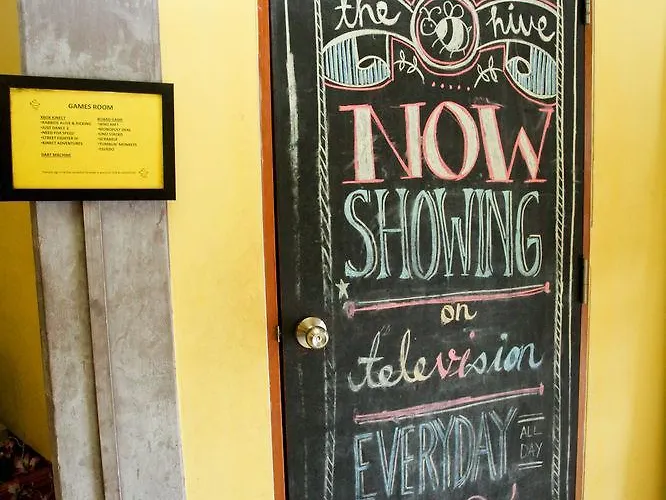 GAMES ROOM
XBOX KINECT
•RABBIDS ALIVE & KICKING
•JUST DANCE 3
•NEED FOR SPEED
•STREET FIGHTER IV
•KINECT ADVENTURES
DART MACHINE
BOARD GAME
•MONOPOLY DEAL
•UNO STACKO
•SCRABBLE
•TUMBLIN' MONKEYS
•CLUEDO
the hive
NOW
SHOWING
on
television
EVERYDAY
ALL
DAY